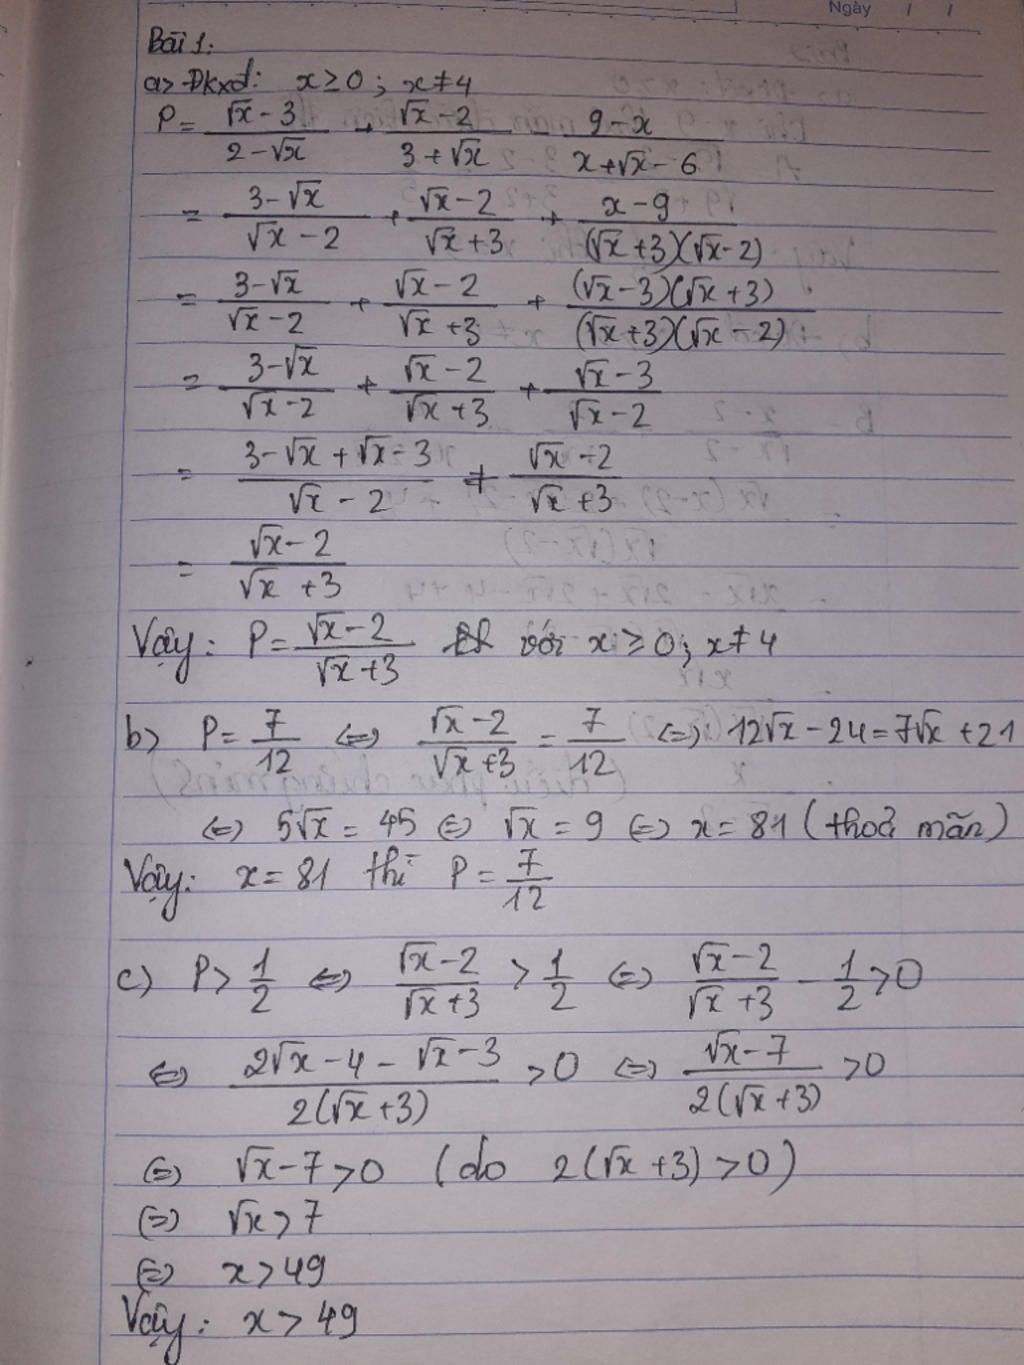 Ngày / /
Bài 1:
a> Đkxđ: x ≥ 0 ; x ≠ 4
P = (√x - 3)/(2 - √x) + (√x - 2)/(3 + √x) - (9 - x)/(x + √x - 6)
= (3 - √x)/(√x - 2) + (√x - 2)/(√x + 3) + (x - 9)/((√x + 3)(√x - 2))
= (3 - √x)/(√x - 2) + (√x - 2)/(√x + 3) + ((√x - 3)(√x + 3))/((√x + 3)(√x - 2))
= (3 - √x)/(√x - 2) + (√x - 2)/(√x + 3) + (√x - 3)/(√x - 2)
= (3 - √x + √x - 3)/(√x - 2) + (√x - 2)/(√x + 3)
= (√x - 2)/(√x + 3)
Vậy: P = (√x - 2)/(√x + 3) với x ≥ 0; x ≠ 4
b> P = 7/12 <=> (√x - 2)/(√x + 3) = 7/12 <=> 12√x - 24 = 7√x + 21
<=> 5√x = 45 <=> √x = 9 <=> x = 81 (thoả mãn)
Vậy: x = 81 thì P = 7/12
c) P > 1/2 <=> (√x - 2)/(√x + 3) > 1/2 <=> (√x - 2)/(√x + 3) - 1/2 > 0
<=> (2√x - 4 - √x - 3)/(2(√x + 3)) > 0 <=> (√x - 7)/(2(√x + 3)) > 0
<=> √x - 7 > 0 (do 2(√x + 3) > 0)
<=> √x > 7
<=> x > 49
Vậy: x > 49